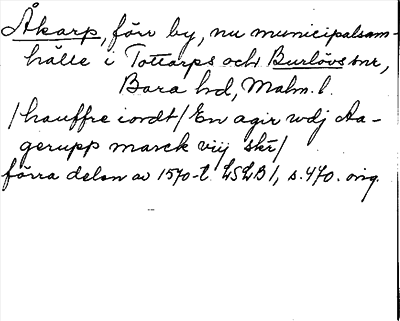 Åkarp, förr by, nu municipalsam-
hälle i Tottarps och Burlövs snr,
Bara hd, Malm. l.
/hauffre iordt/ En agir wdj Aa-
gerupp marck viij skr/
förra delen av 1570-t. LSLB 1, s. 470. orig.